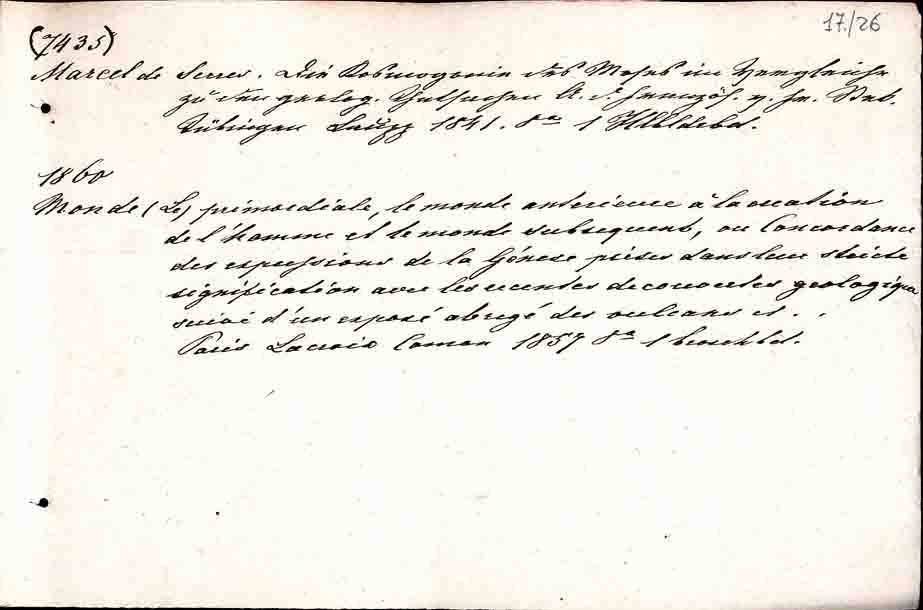 17./26
(7435)
Marcel de Serres. Die Kosmogonie des Moses im Vergleiche
zu den geolog. Thatsachen A. d. Französ. v. Fr. Stek.
Tübingen Laupp 1841. 8° 1 Hlbldrbd.
1860
Monde (Le) primordiale, le monde anterieure à la creation
de l'homme et le monde subsequent, ou Concordance
des expressions de la Génese prises dans leur stricte
signification avec les recentes decouvertes geologiques
suivi d'un exposé abregé des vulcans et. .
Paris Lacroix Comon 1857 8° 1 broschbd.